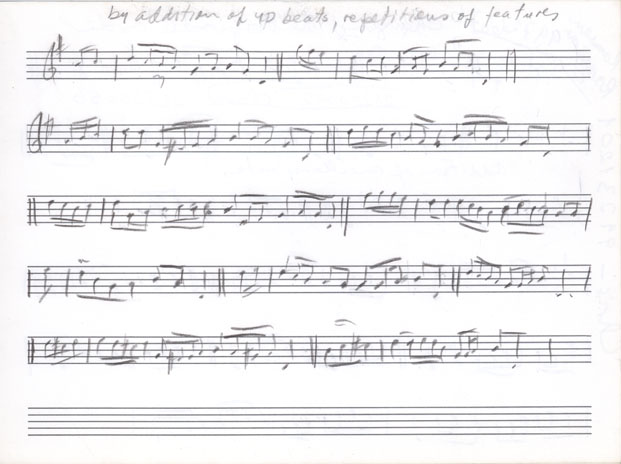 by addition of up beats, repetitions of features